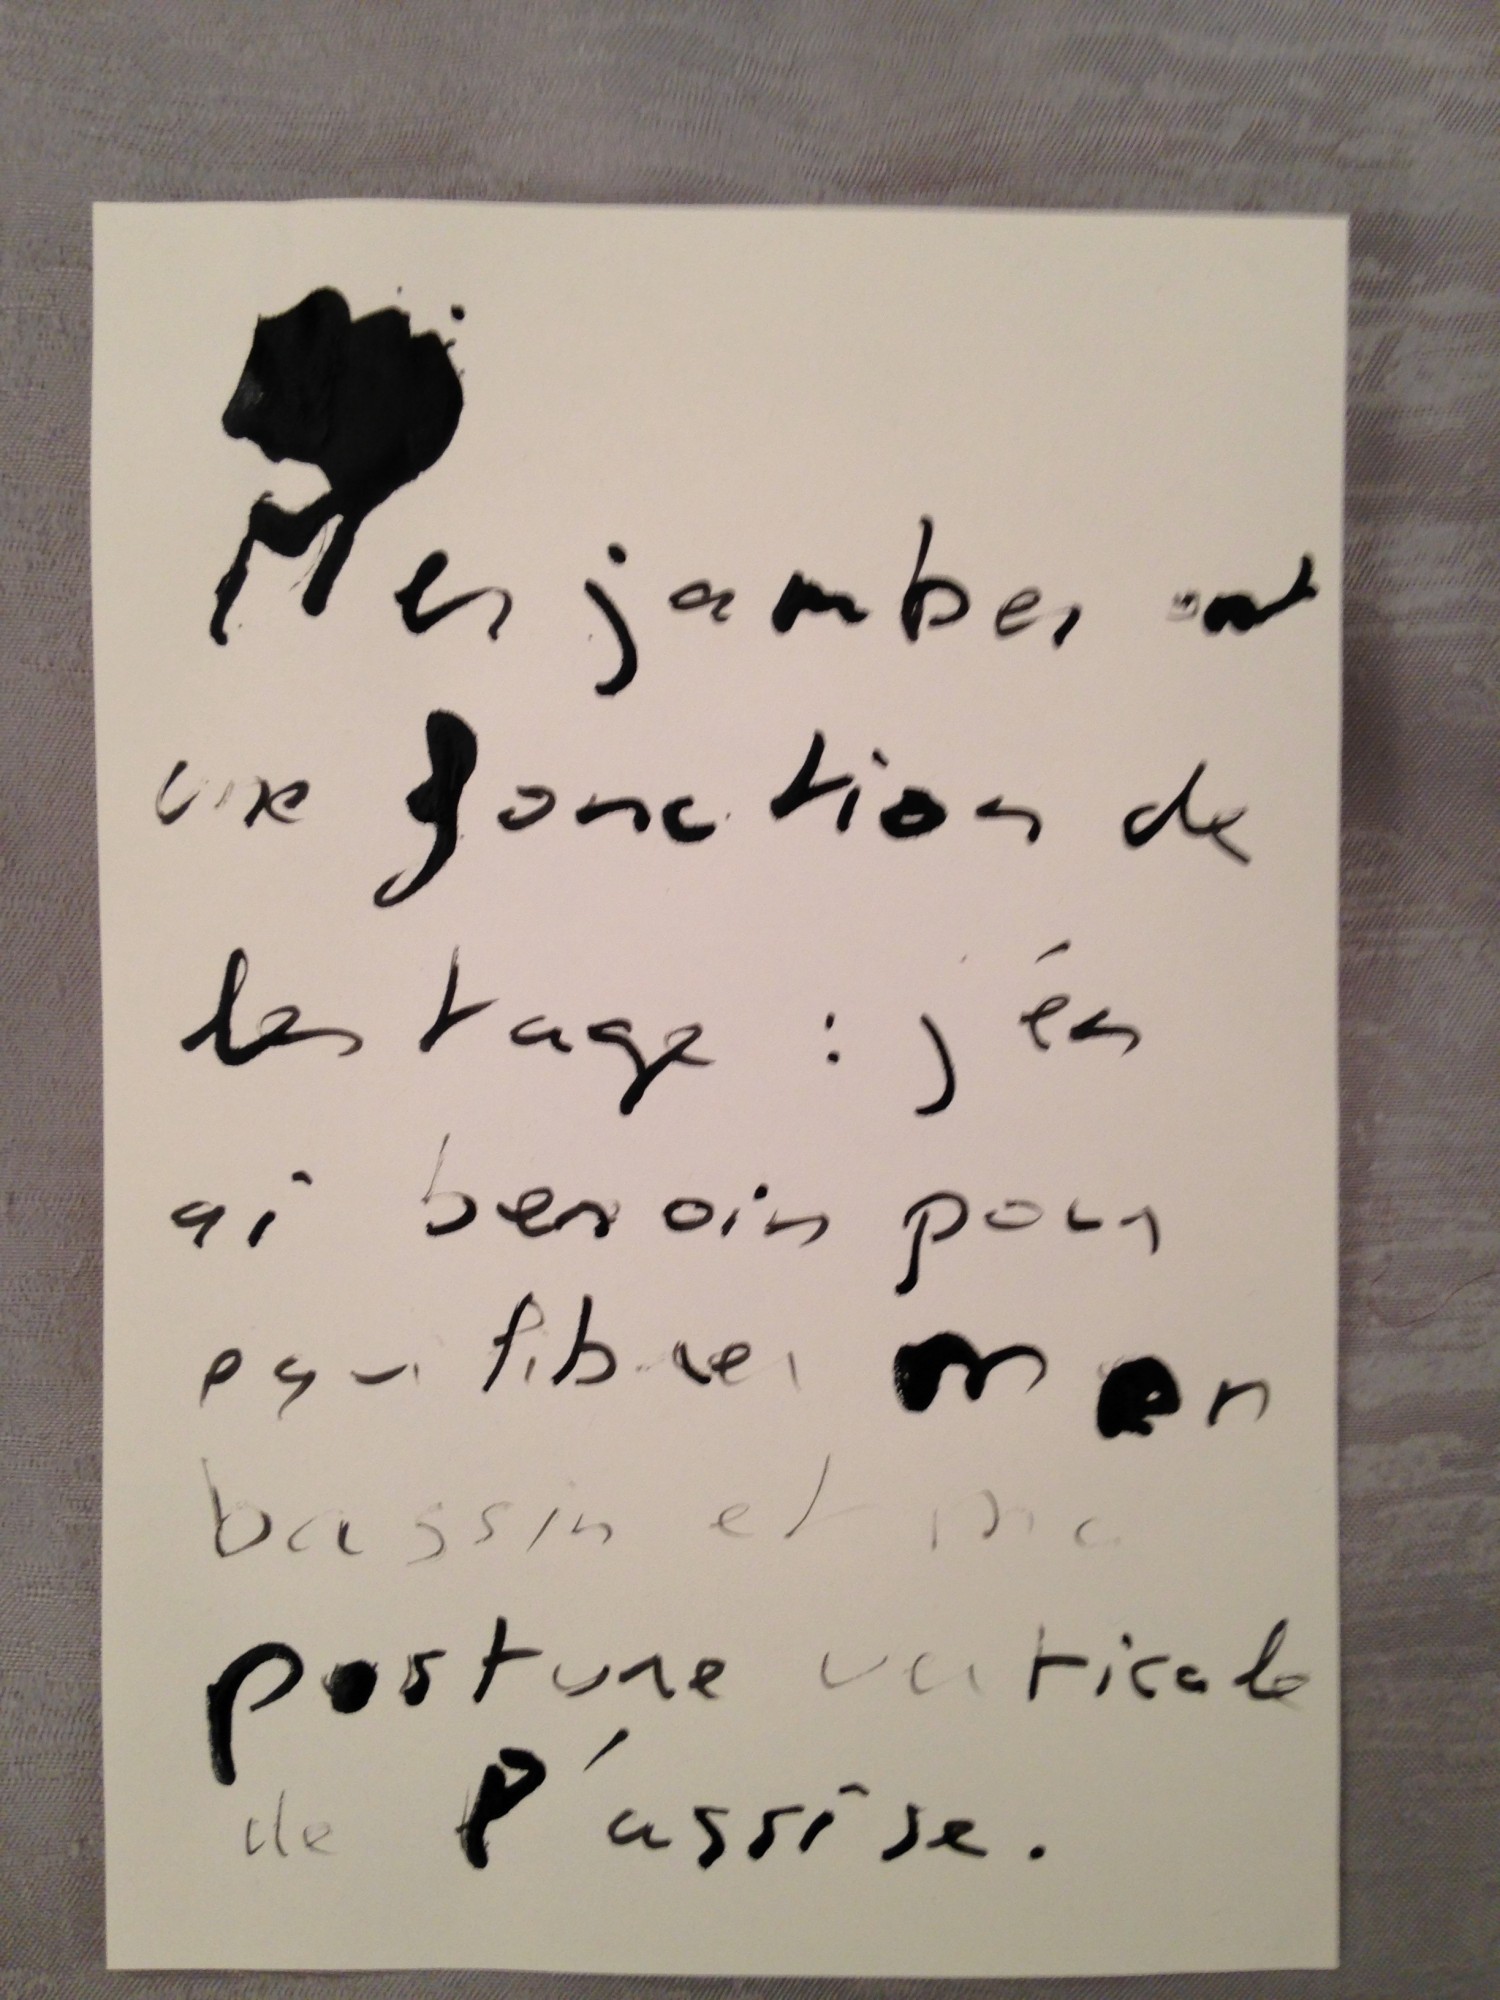 Mes jambes ont
une fonction de
lestage : j'en
ai besoin pour
equilibrer mon
bassin et ma
posture verticale
de l'assise.